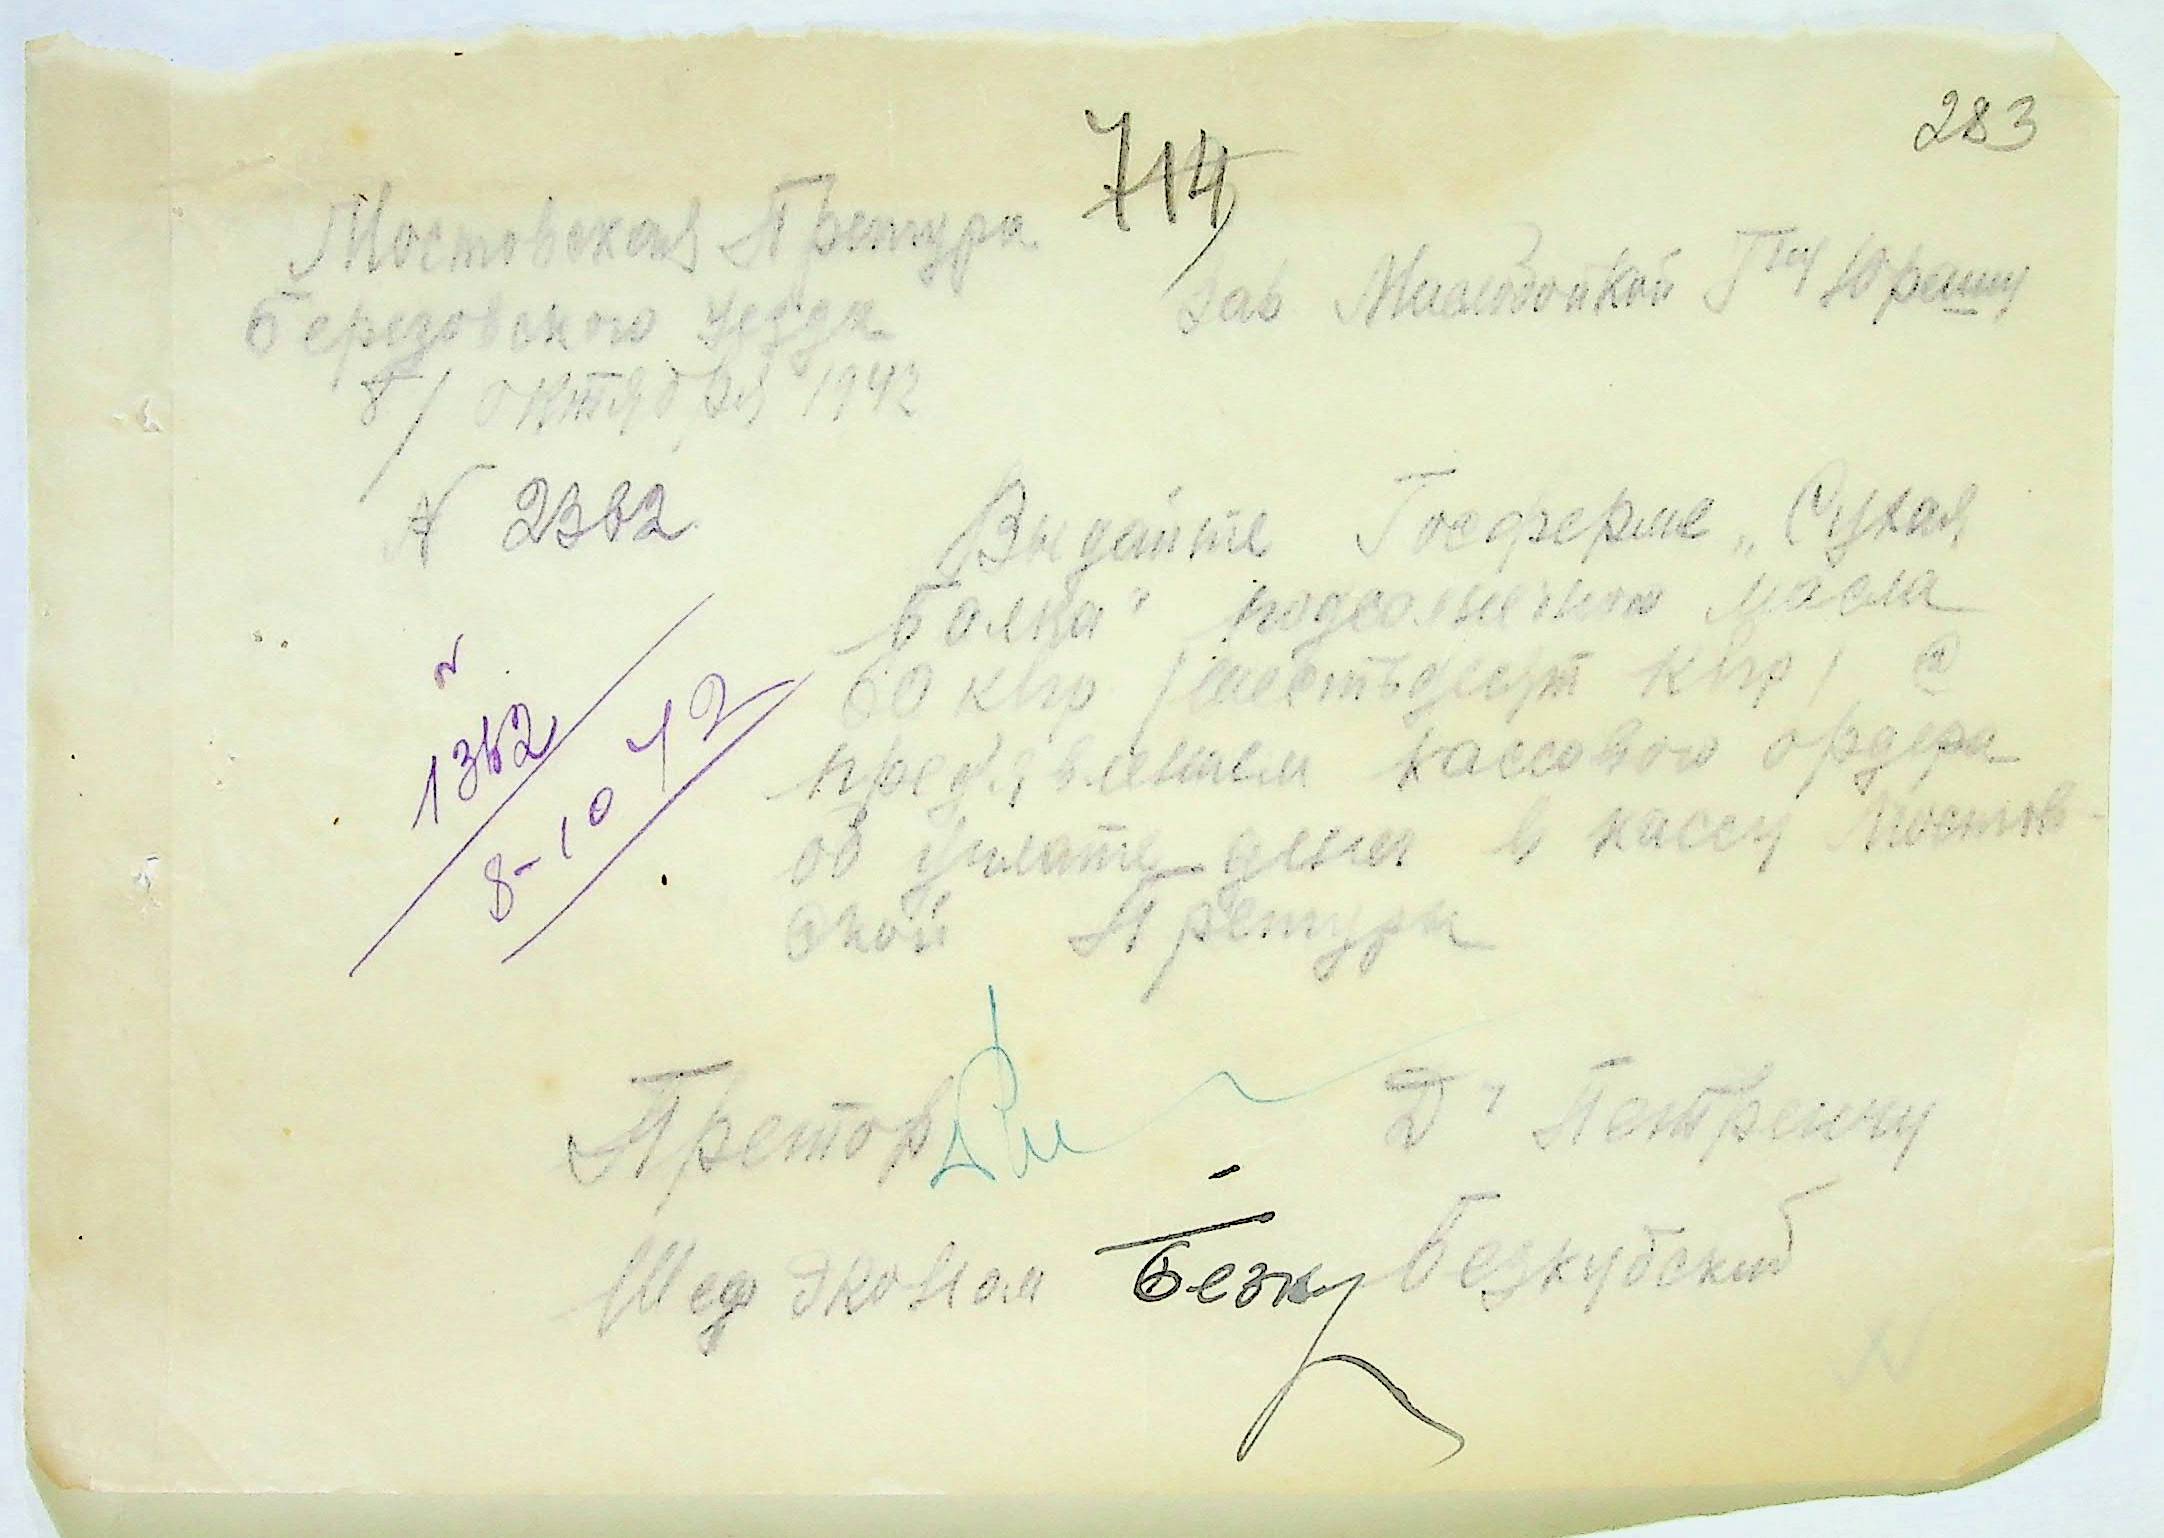 283
714
Мостовская Претура
Березовского уезда
8/ октября 1942
N 2362
Зав Маслобойкой Г-ну Юрашу
Выдайте Госферме „Сухая
Балка" подсолнечного масла
60 кгр /шестьдесят кгр/ с
предявлением кассового ордера
об уплате денег в кассу Мостов-
ской Претуры
N
1362
8-10 42
Претор Д. Петренчу
Шеф Эконом Безку Безкубский